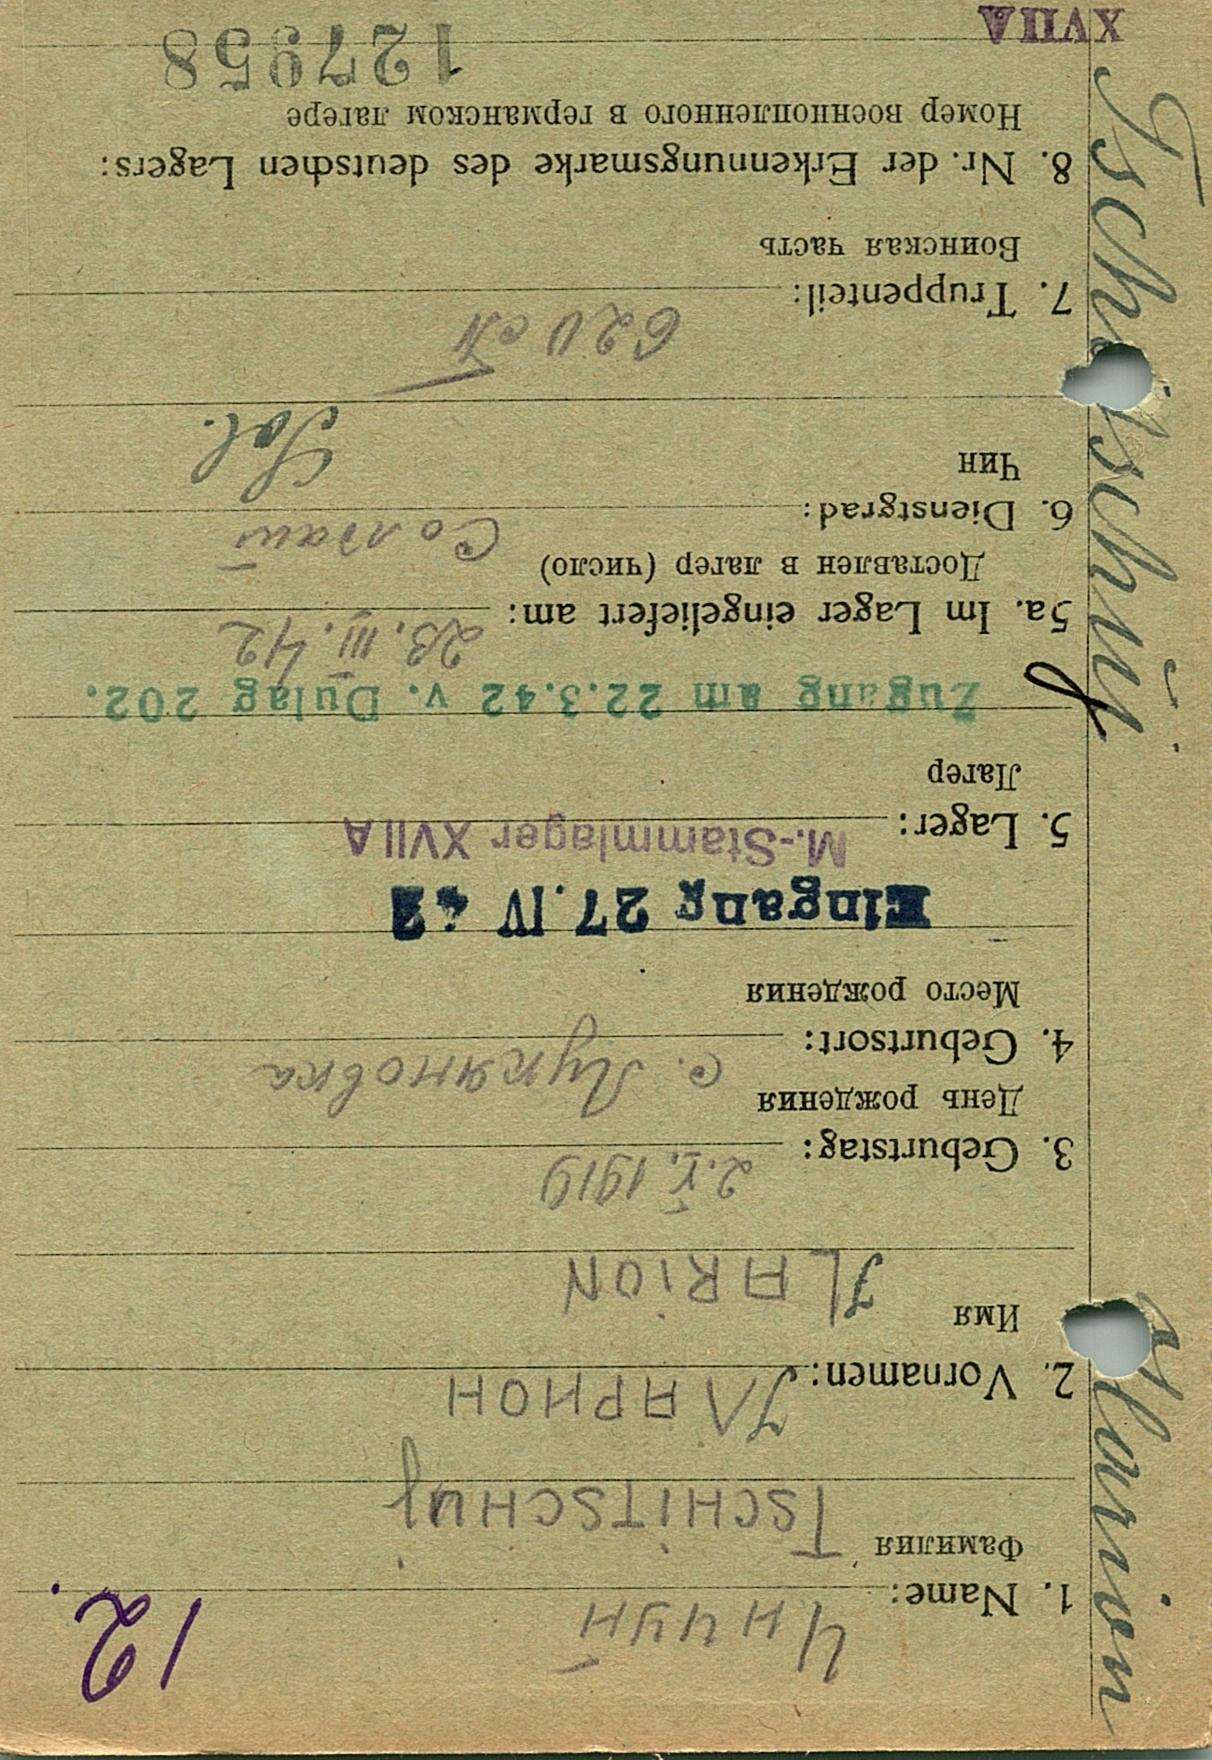 12.
1. Name: Чичуй
Фамилия
TSCHiTSCHUj
2. Vornamen: JЛАРИОН
Имя
JLARiON
3. Geburtstag: 2.V.1919
День рождения
4. Geburtsort: с. Лукяновка
Место рождения
Eingang 27. IV 42
5. Lager: M.-Stammlager XVII A
Лагер
Zugang am 22.3.42 v. Dulag 202.
5a. Im Lager eingeliefert am: 23. III. 42
Доставлен в лагер (число)
6. Dienstgrad: Солдат
Чин
Sol.
7. Truppenteil: 620 сп
Воинская часть
8. Nr. der Erkennungsmarke des deutschen Lagers:
Номер военнопленного в германском лагере
127958
XVII A
Tschitschuj
Ilarion